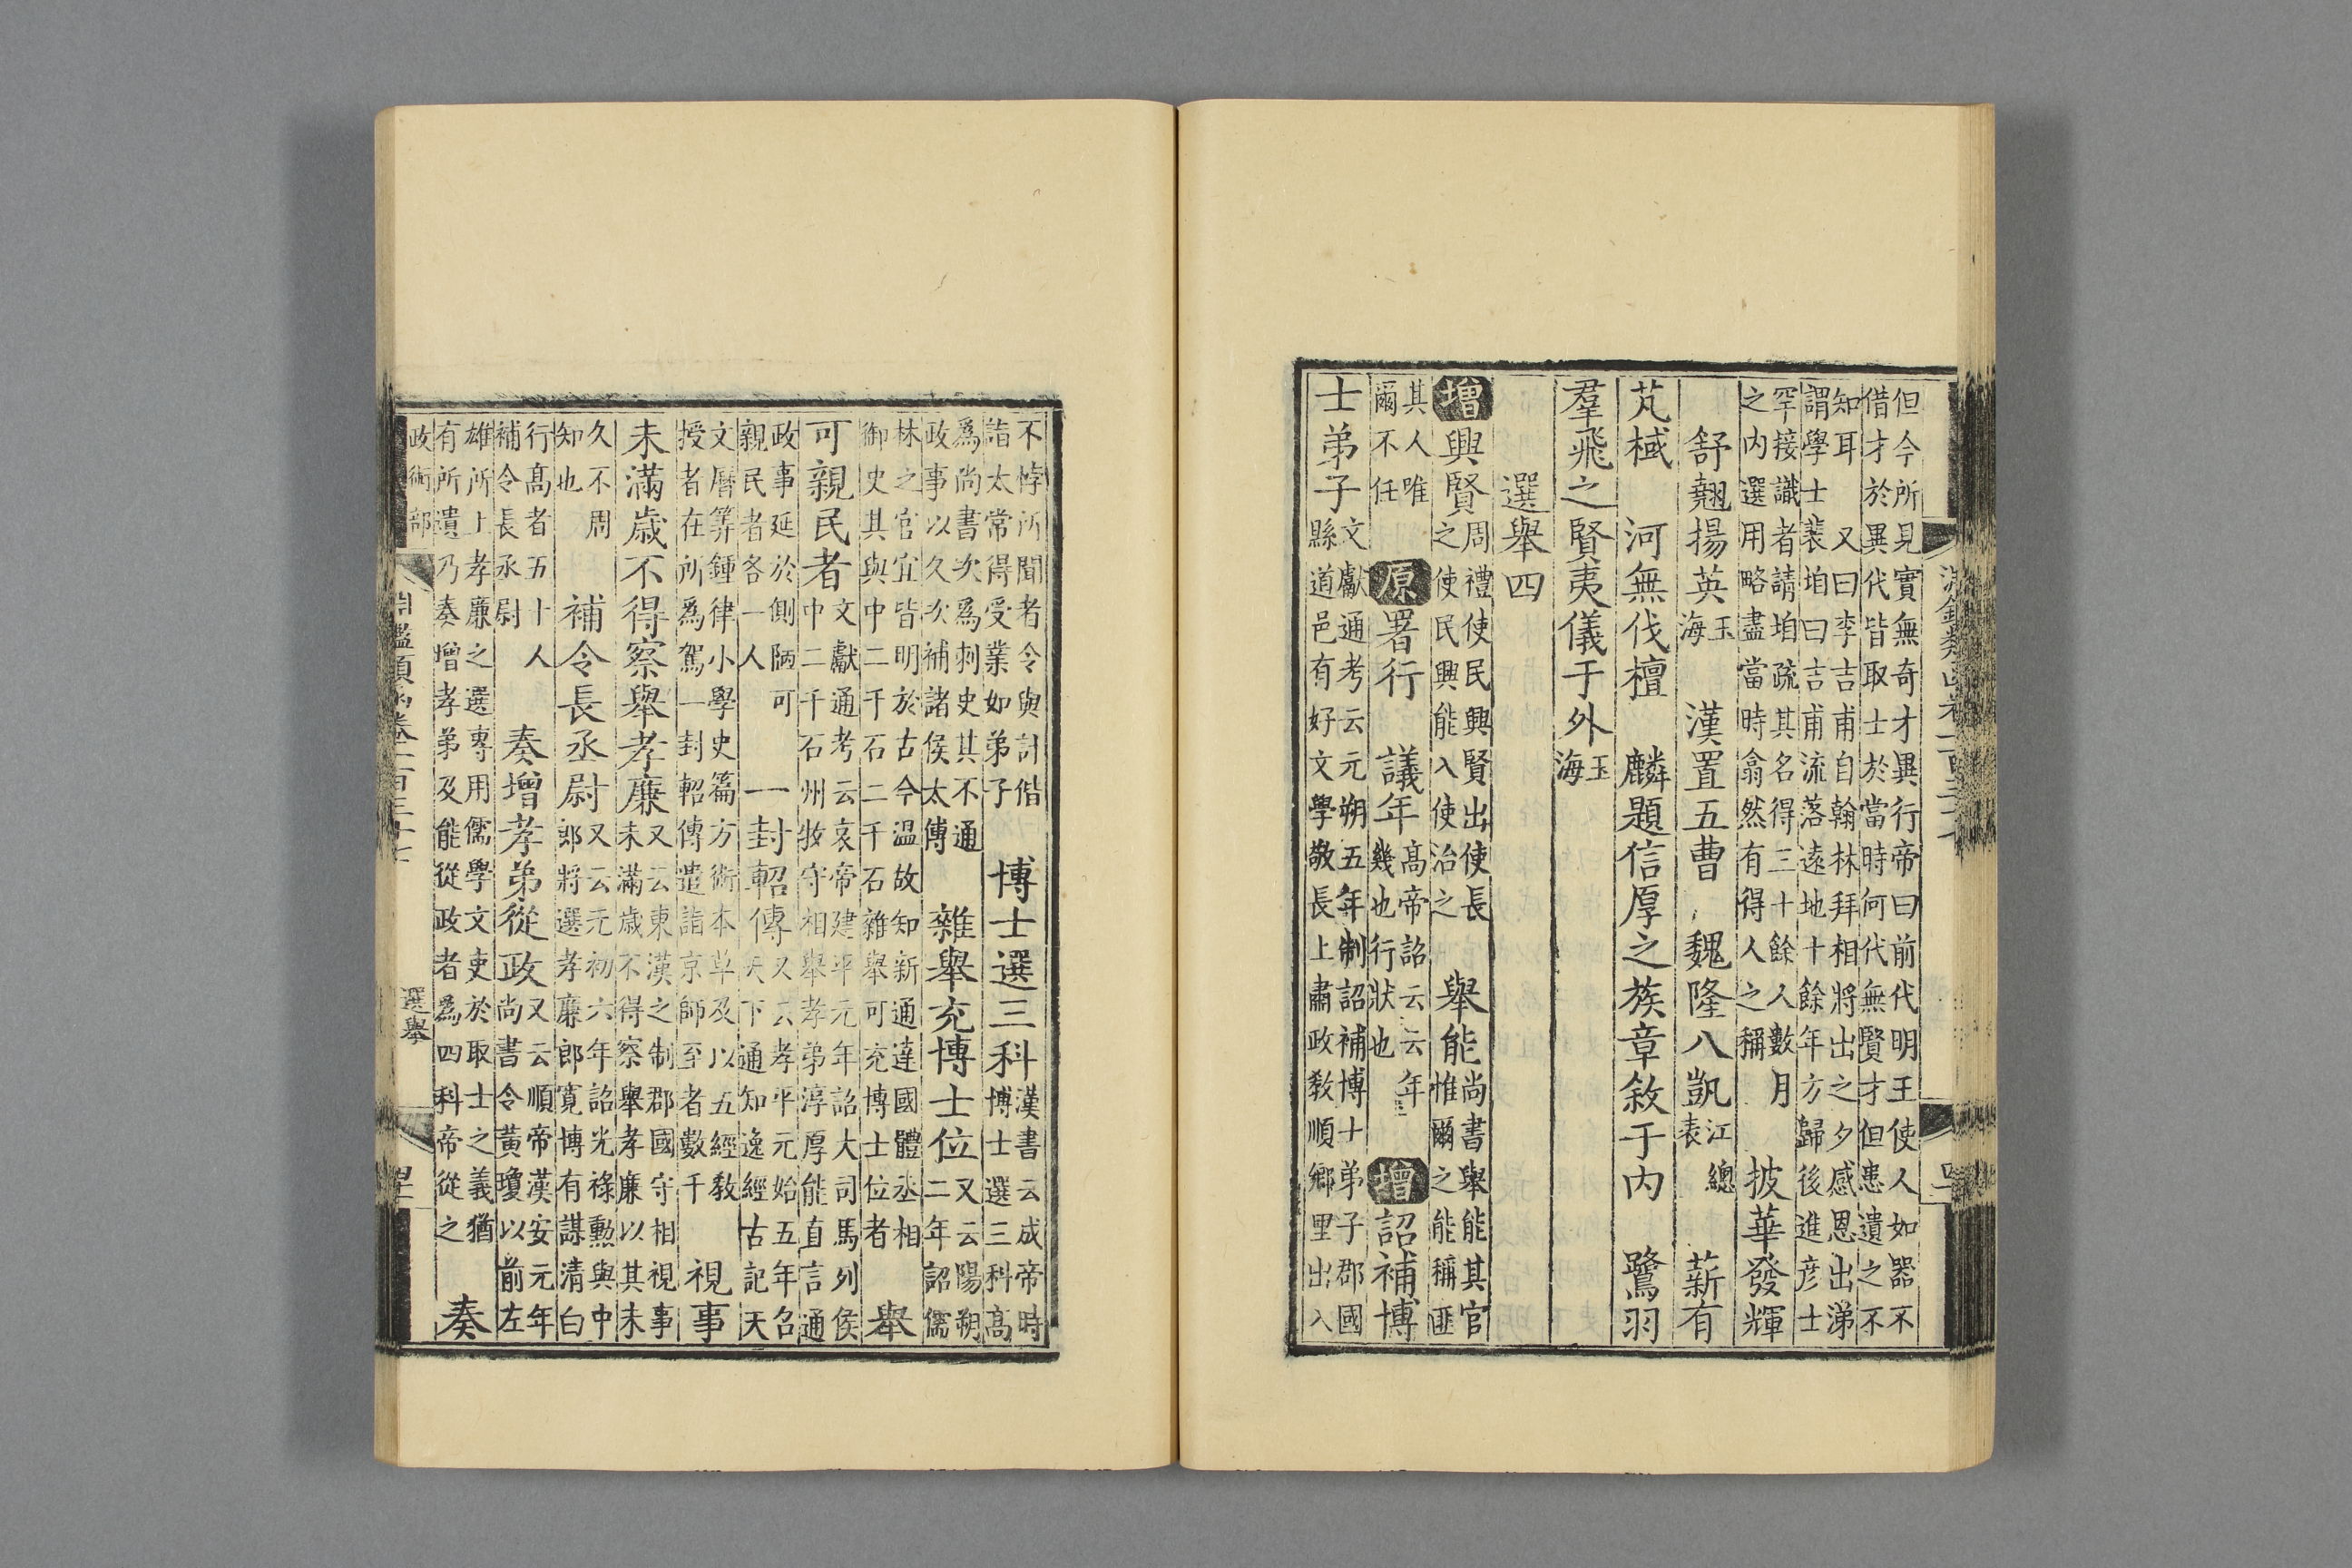 但今所見實無奇才異行帝曰前代明王使人如器不
借才於異代皆取士於當時何代無賢才但患遺之不
知耳　又曰李吉甫自翰林拜相將出之夕感恩出涕
謂學士裴垍曰吉甫流落遠地十餘年方歸後進彥士
罕接識者請垍疏其名得三十餘人數月
之內選用略盡當時翕然有得人之稱　披華發輝
舒翹揚英玉海　漢置五曹　魏隆八凱江總表　薪有
芃棫　河無伐檀　麟題信厚之族章敘于內　鷺羽
羣飛之賢夷儀于外玉海
選舉四
增興賢周禮使民興賢出使長之使民興能入使治之　舉能尚書舉能其官惟爾之能稱匪
其人唯爾不任　原署行　議年高帝詔云云年幾也行狀也　增詔補博
士弟子文獻通考云元朔五年制詔補博士弟子郡國縣道邑有好文學敬長上肅政教順鄉里出入
不悖所聞者令與計偕詣太常得受業如弟子　博士選三科漢書云成帝時博士選三科高
爲尚書次爲刺史其不通政事以久次補諸侯太傅　雜舉充博士位又云陽朔二年詔儒
林之官宜皆明於古今溫故知新通達國體丞相御史其與中二千石二千石雜舉可充博士位者　舉
可親民者文獻通考云哀帝建平元年詔大司馬列侯中二千石州牧守相舉孝弟淳厚能直言通
政事延於側陋可親民者各一人　一封軺傳又云孝平元始五年召天下通知逸經古記天
文曆筭鍾律小學史篇方術本草及以五經教授者在所爲駕一封軺傳遣詣京師至者數千　視事
未滿歲不得察舉孝廉又云東漢之制郡國守相視事未滿歲不得察舉孝廉以其未
久不周知也　補令長丞尉又云元初六年詔光祿勲與中郎將選孝廉郎寬博有謀清白
行高者五十人補令長丞尉　奏增孝弟從政又云順帝漢安元年尚書令黃瓊以前左
雄所上孝廉之選專用儒學文吏於取士之義猶有所遺乃奏增孝弟及能從政者爲四科帝從之　奏
政術部
選舉